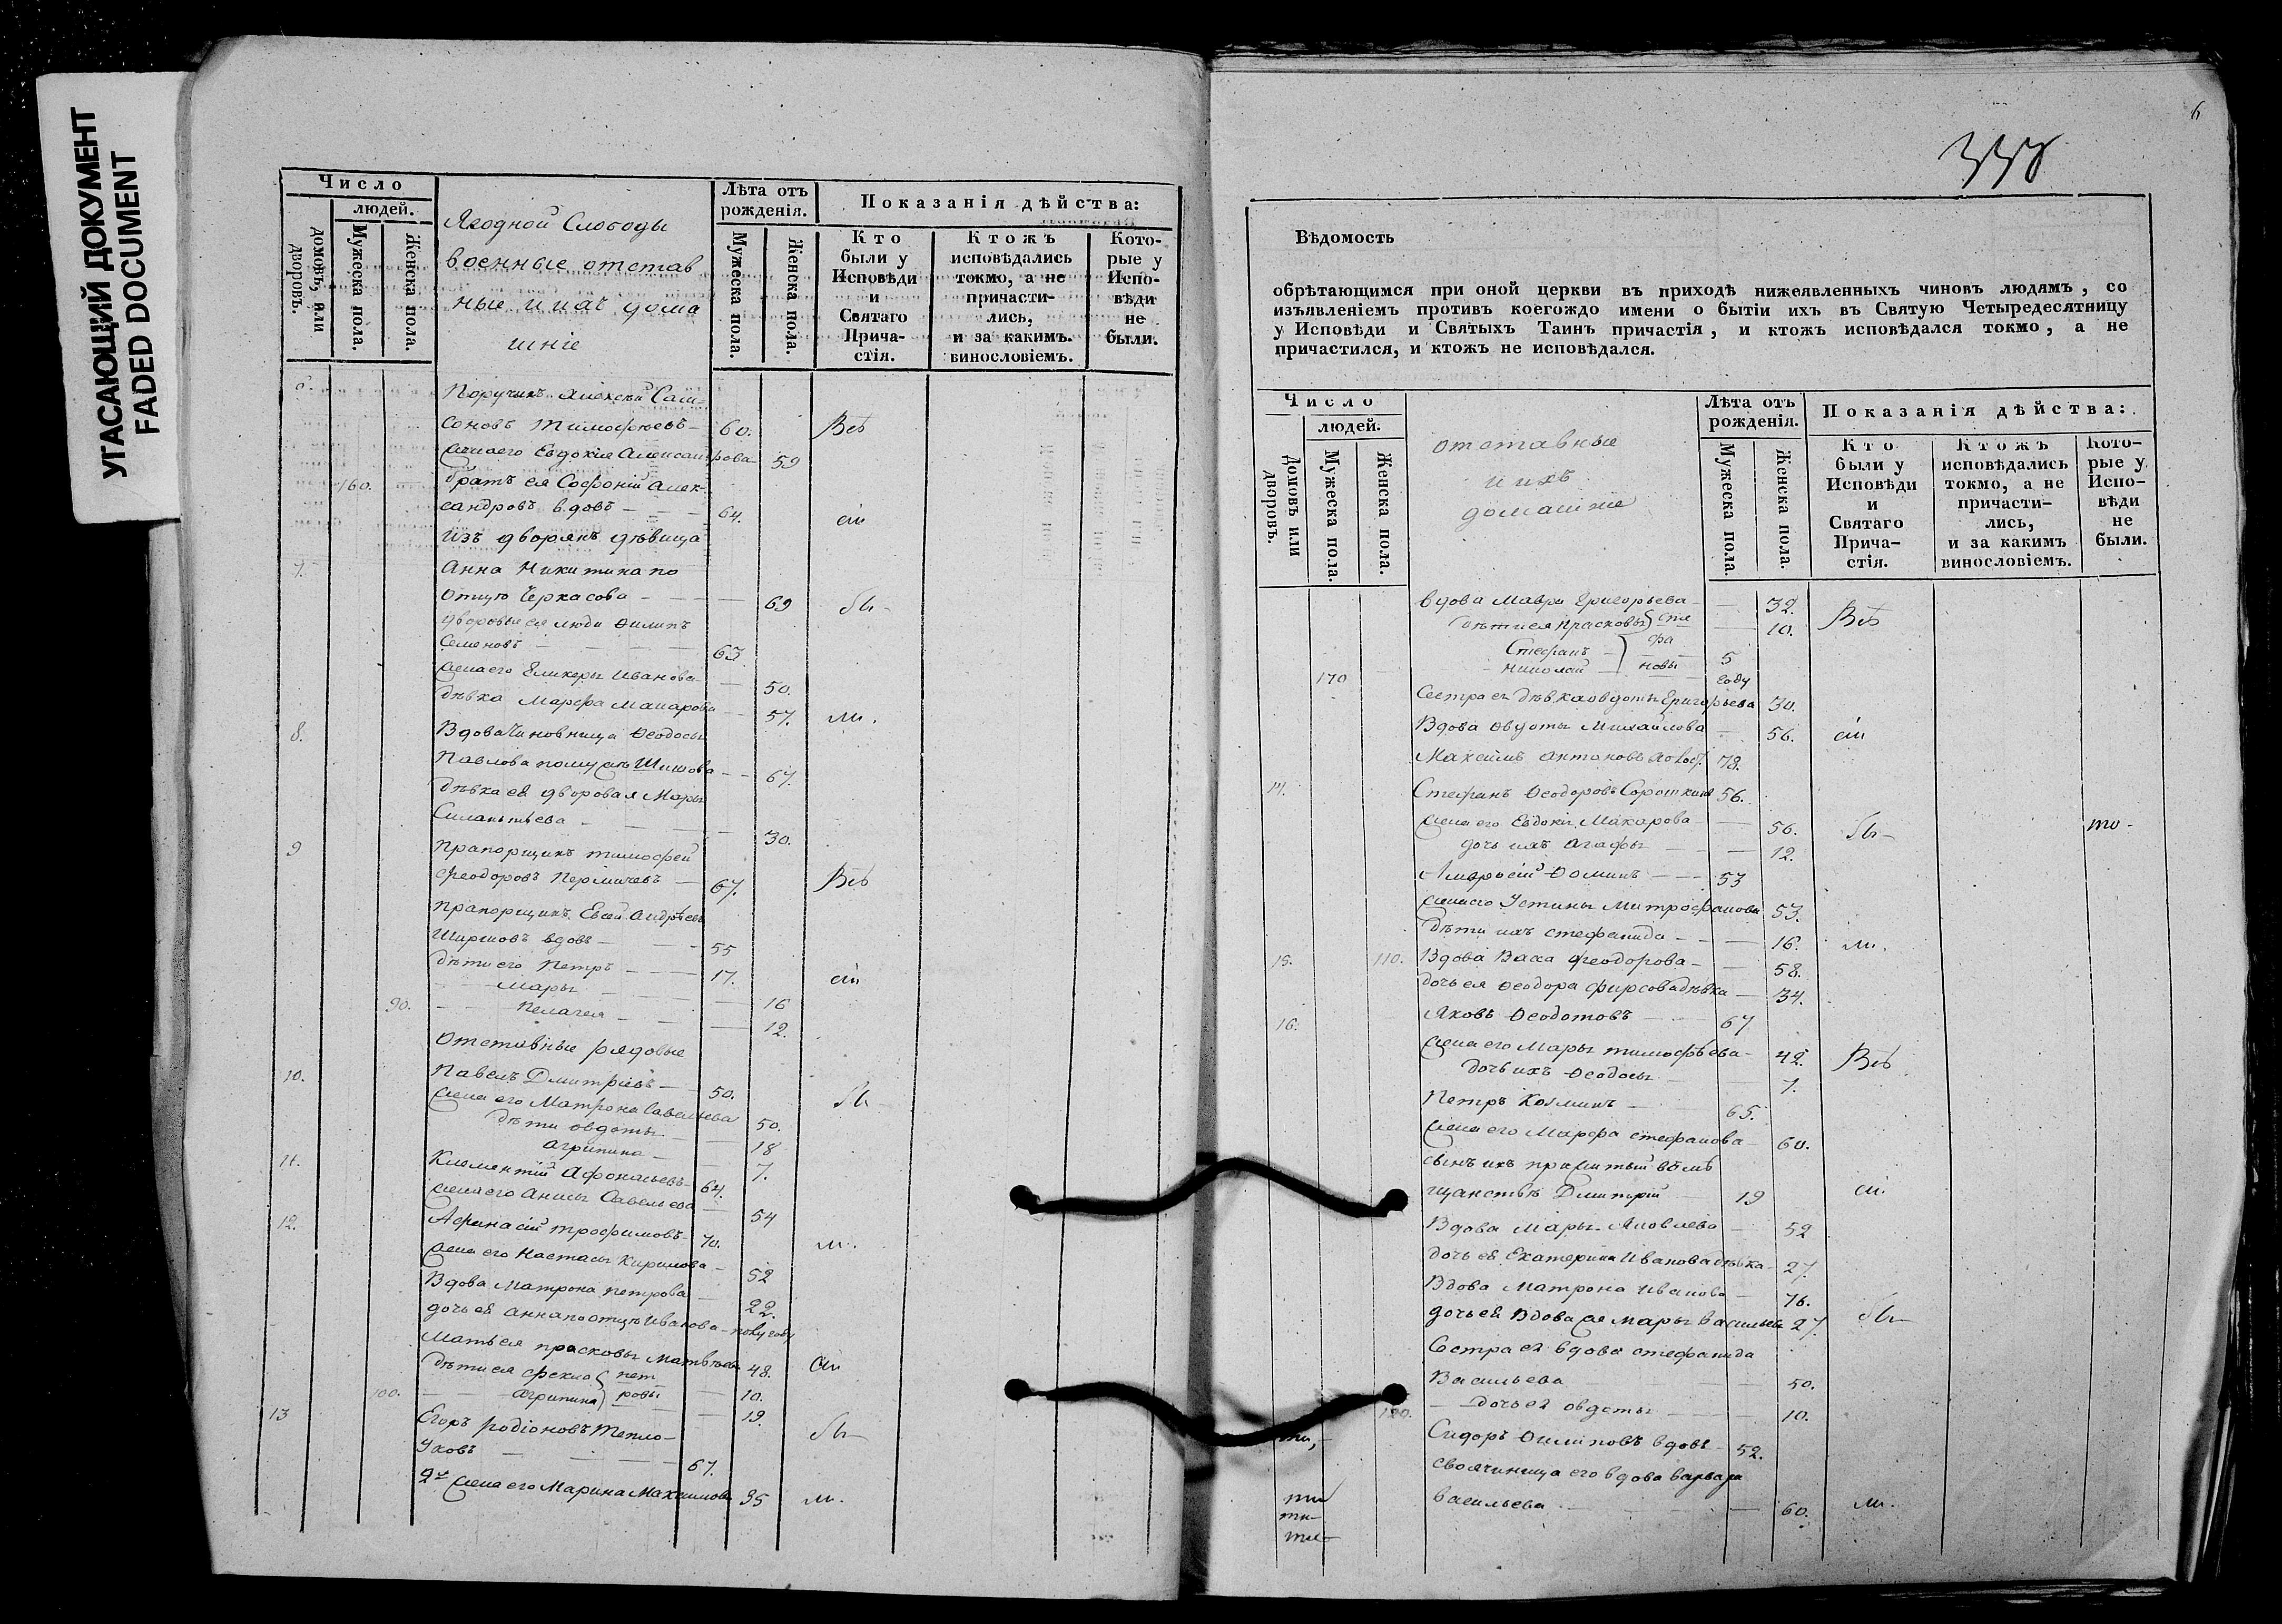 УГАСАЮЩИЙ ДОКУМЕНТ
FADED DOCUMENT
Число
людей.
домовъ, или дворовъ.
Мужеска пола.
Женска пола.
Ягодной Слободы
военные отстав
ные и ихъ дома
шніе
Лѣта отъ рожденія.
Мужеска пола.
Женска пола.
Показанія дѣйства:
Кто были у Исповѣди и Святаго Прича-стія.
Ктожъ исповѣдались токмо, а не причасти-лись, и за какимъ винословіемъ.
Кото-рые у Испо-вѣди не были.
Поручикъ Алексѣй Сам-
соновъ Тимофѣевъ 60. Всѣ
Жена его Евдокія Александрова 59
160. братъ ея Софоній Алек-
сандровъ вдовъ 64. сіи
изъ дворянъ дѣвица
7. Анна Никитина по
отцѣ Черкасова 69 бы-
дворовые ея люди Филипъ
Семеновъ 63
Жена его Гликерья Иванова 50.
дѣвка Марфа Макарова 57. ли.
8. Вдова Чиновница Феодосья
Павлова по мужѣ Шишова 67.
дѣвка ея дворовая Марья
Силантьева 30.
9 Прапорщикъ Тимофей
Феодоровъ 67. Всѣ
Прапорщикъ Евсей Андрѣевъ
вдовъ 55
дѣти его Петръ 17. сіи
Марья 16
90. Пелагея 12.
Отставные рядовые
10. Павелъ Дмитріевъ 50. бы-
Жена его Матрона Савельева 50.
дѣти Овдотья 18
Агрипина 7.
11. Клементій Афонасьевъ 64.
Жена его Анисья Савельева 54
12. Афанасій Трофимовъ 70. ли.
Жена его Настасья Кирилова 52
Вдова Матрона Петрова 22.
дочь ея Анна по отцѣ Иванова полугоду
Мать ея Прасковья Матвѣева 48. сіи
дѣти ея Фекла } пет 10.
100. Агрипина } ровы 19.
13 Егоръ Родіоновъ Тепло-
уховъ 67. бы-
2я Жена его Марина Максимова 35 ли.
6
338
Вѣдомость
обрѣтающимся при оной церкви въ приходѣ нижеявленныхъ чиновъ людямъ, со
изъявленіемъ противъ коегождо имени о бытіи ихъ въ Святую Четыредесятницу
у Исповѣди и Святыхъ Таинъ причастія, и ктожъ исповѣдался токмо, а не
причастился, и ктожъ не исповѣдался.
Число
людей.
домовъ или дворовъ.
Мужеска пола.
Женска пола.
отставные
и ихъ
домашніе
Лѣта отъ рожденія.
Мужеска пола.
Женска пола.
Показанія дѣйства:
Кто были у Исповѣди и Святаго Прича-стія.
Ктожъ исповѣдались токмо, а не причасти-лись, и за какимъ винословіемъ.
Кото-рые у Испо-вѣди не были.
вдова Мавра Григорьева 32. Всѣ
дѣти ея Прасковья } Сте 10.
Стефанъ } фа 5
170 Николай } новы году
Сестра ея дѣвка Овдотья Григорьева 30.
Вдова Овдотья Михайлова 56. сіи
Максимъ Антоновъ 78.
14. Стефанъ Феодоровъ Сорокинъ 56.
Жена его Евдокія Макарова 56. бы- то-
дочь ихъ Агафья 12.
Амвросій Фоминъ 53
Жена его Устинья Митрофанова 53.
дѣти ихъ Стефанида 16. ли.
15. 110. Вдова Васса Феодорова 58.
дочь ея Феодора Фирсова дѣвка 34.
16. Яковъ Феодотовъ 67
Жена его Марья Тимофѣева 42. Всѣ
дочь ихъ Феодосья 7.
Петръ Козминъ 65.
Жена его Марфа Стефанова 60.
сынъ ихъ прижитый въ мѣ
щанствѣ Дмитрій 19 сіи.
Вдова Марья Яковлева 52
дочь ея Екатерина Иванова дѣвка 27.
Вдова Матрона Иванова 76.
дочь ея Вдова же Марья Васильева 27. бы-
Сестра ея вдова Стефанида
Васильева 50.
120. Дочь ея Овдотья 10.
Сидоръ Филиповъ вдовъ 52.
своячиница его вдова Варвара
Васильева 60. ли.